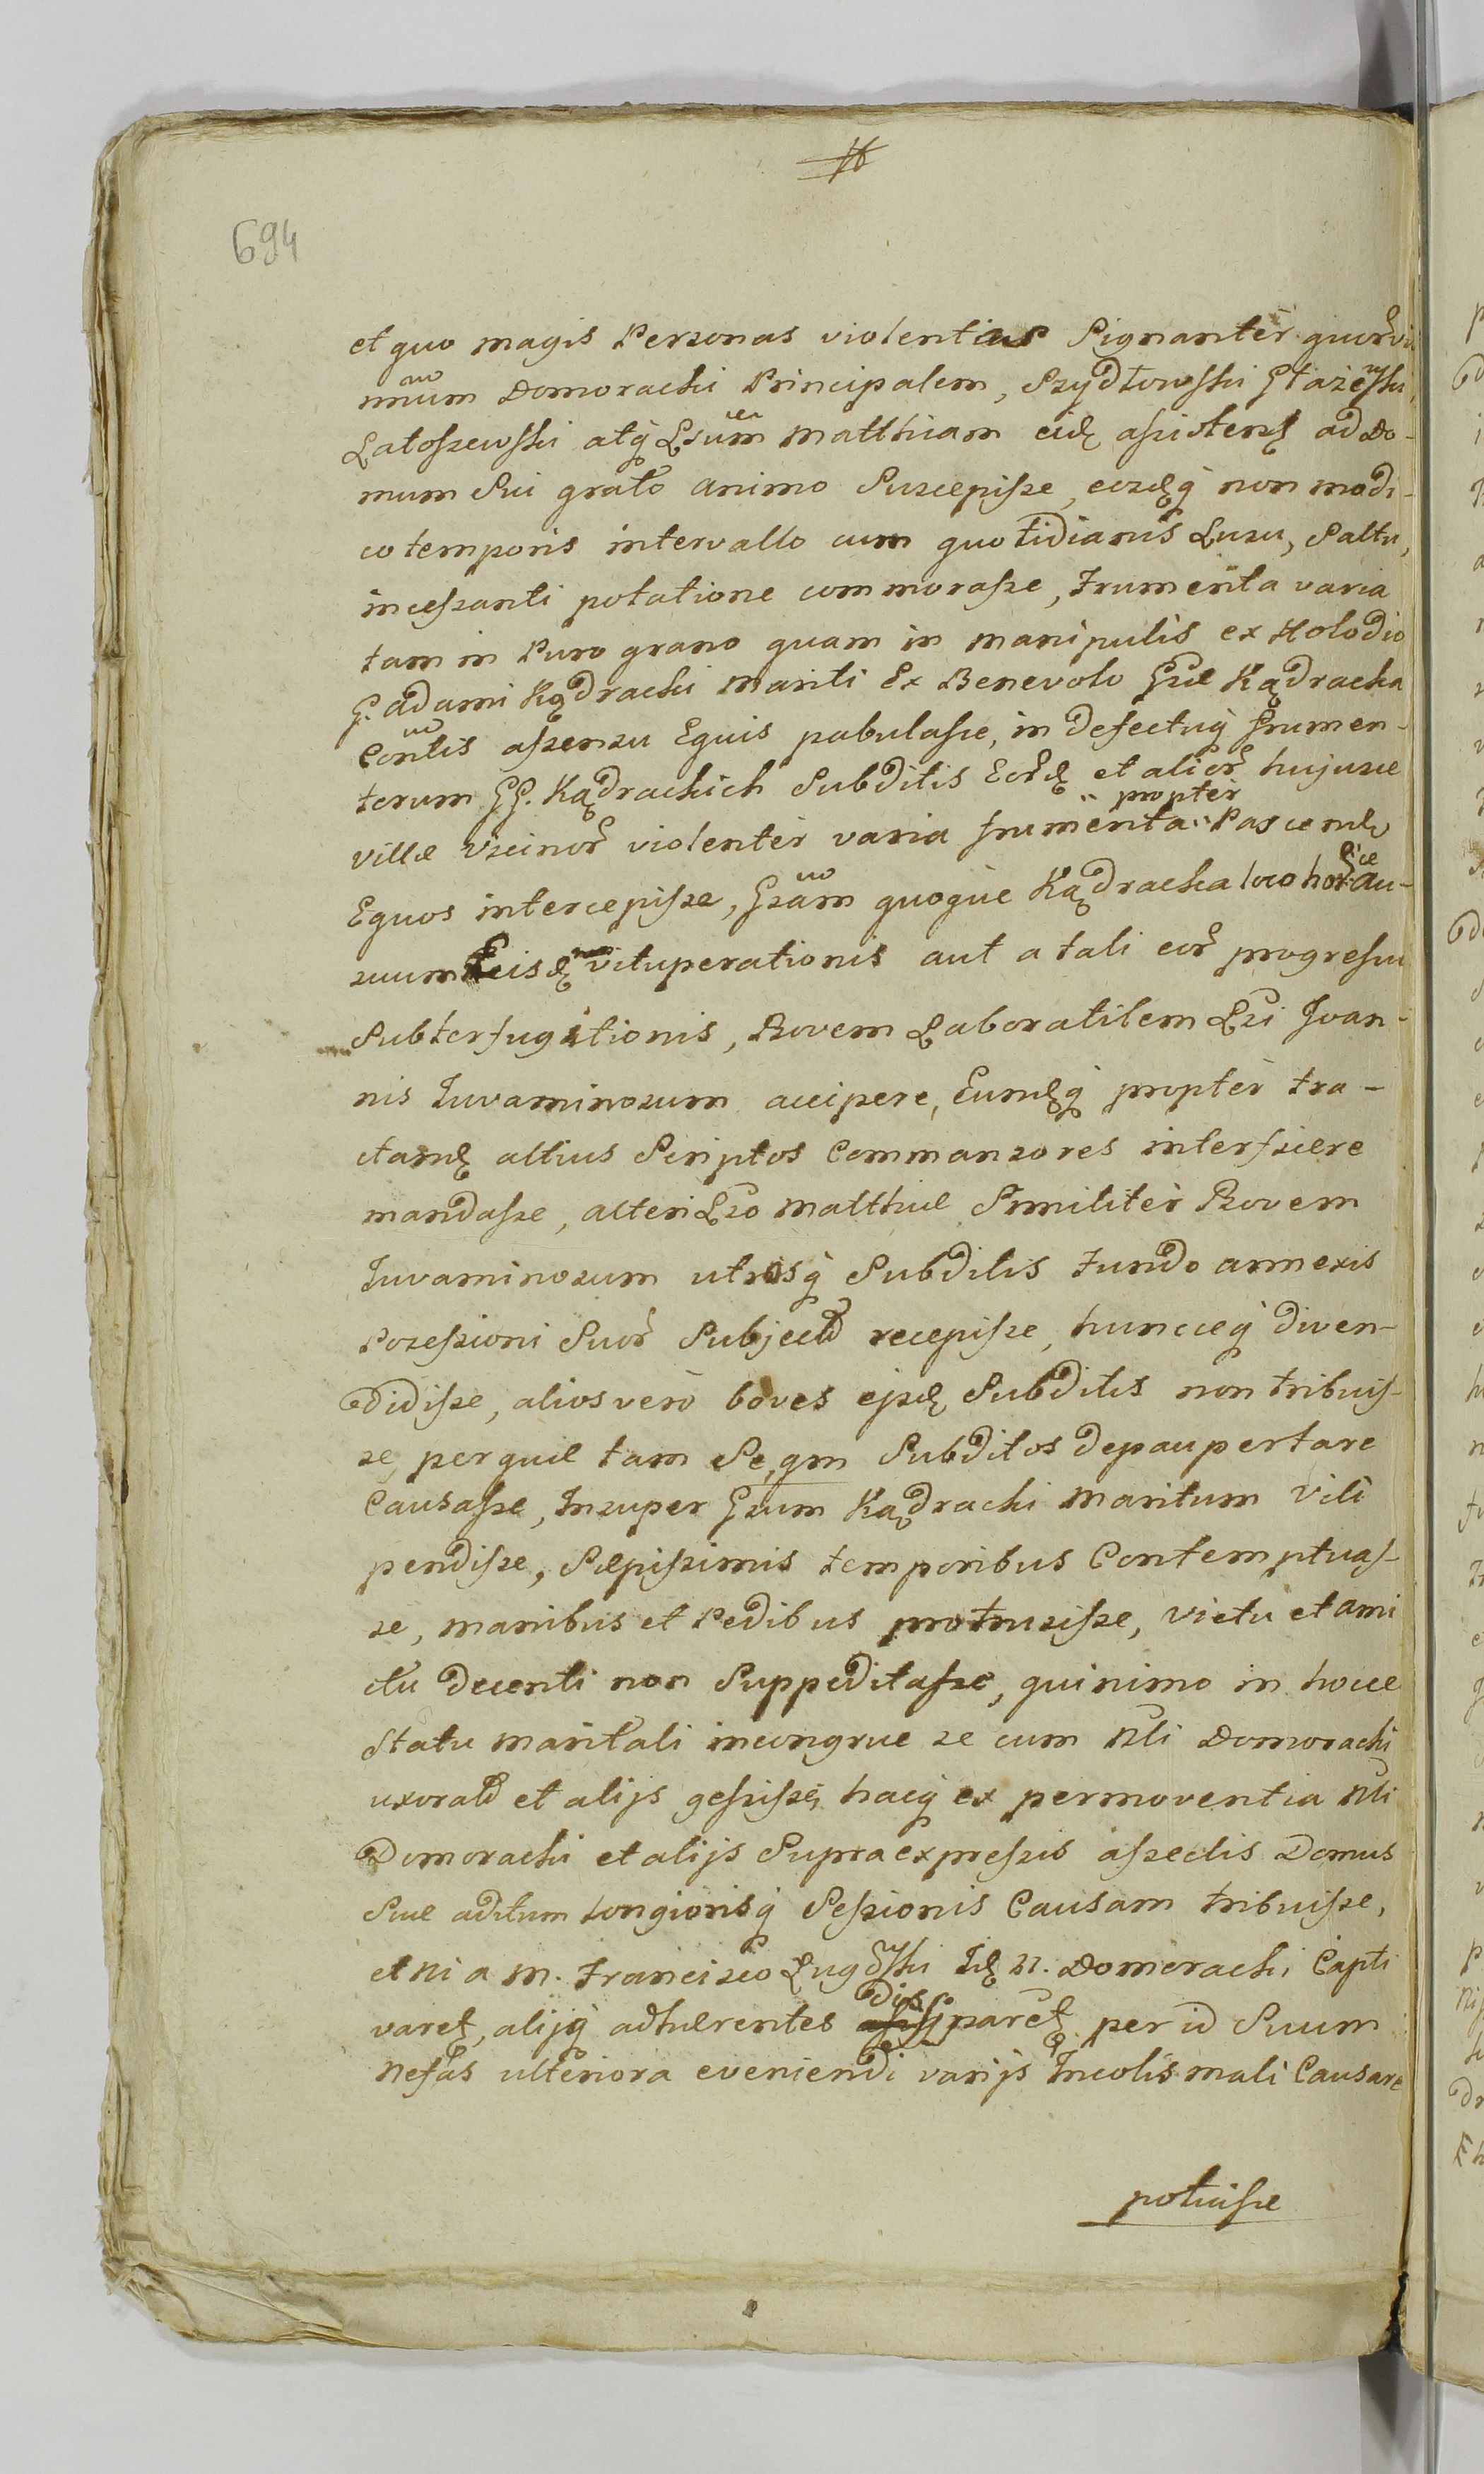 694
et quo magis Personas violentias Signanter
nuum Domoracki Principalem, Szydłowski Głażewski,
Łatoszewski atq Lrum Matthiam eidę assistenę ad Do-
mum Sui grato animo Suscepisse, eosdęq non modi-
co temporis intervallo cum quotidianis Lusu, Saltu,
incessanti potatione commorasse, Frumenta varia
tam in Puro grano quam in manipulis ex Holodio
G. Adami Kądracki Mariti Ex Benevolo Gsæ Kądracka
Contis assensu Equis pabulasse, in defectuq frumen-
torum GG. Kądrackich Subditis Eordę et alior hujusce
propter
villæ vicinor violenter varia frumenta Pascendo
Equos intercepisse, Gsam quoque Kądracka loco
suum eisdę vituperationis aut a tali eor progressu
Subterfugitionis, Bovem Laboratilem Lsi Joan-
nis Juvaminosum accipere, Eumdęq propter tra-
ctandę altius Scriptos Commansores interficere
mandasse, alteri Lso Matthiæ Similiter Bovem
Juvaminosum utrisq Subditis Fundo annexis
Possessioni Suor Subject recepisse, huncceq diven-
didisse, alios vero boves ejsdę Subditis non tribuis-
se, per quæ tam Se, qm Subditos depaupertare
Causasse, Insuper Gsum Kądracki Maritum Vili
pendisse, Sæpissimis temporibus Contemptuas-
se, manibus et Pedibus protrusisse, victu et ami
ctu decenti non Suppeditasse, quinimo in hocce
Statu maritali incongrue se cum Nli Domoracki
uxorato et alijs gessisse, hacq ex permoventia Nli
Domoracki et alijs Supra expressis asseclis Domus
Suæ aditum Longiorisq Sessionis Causam tribuisse,
et ni a M. Francisco Idę N. Domoracki Capti
varet, alijq adhærentes disparet per id Suum
Nefas ulteriora eveniendi varijs Incolis mali Causare
potuisse